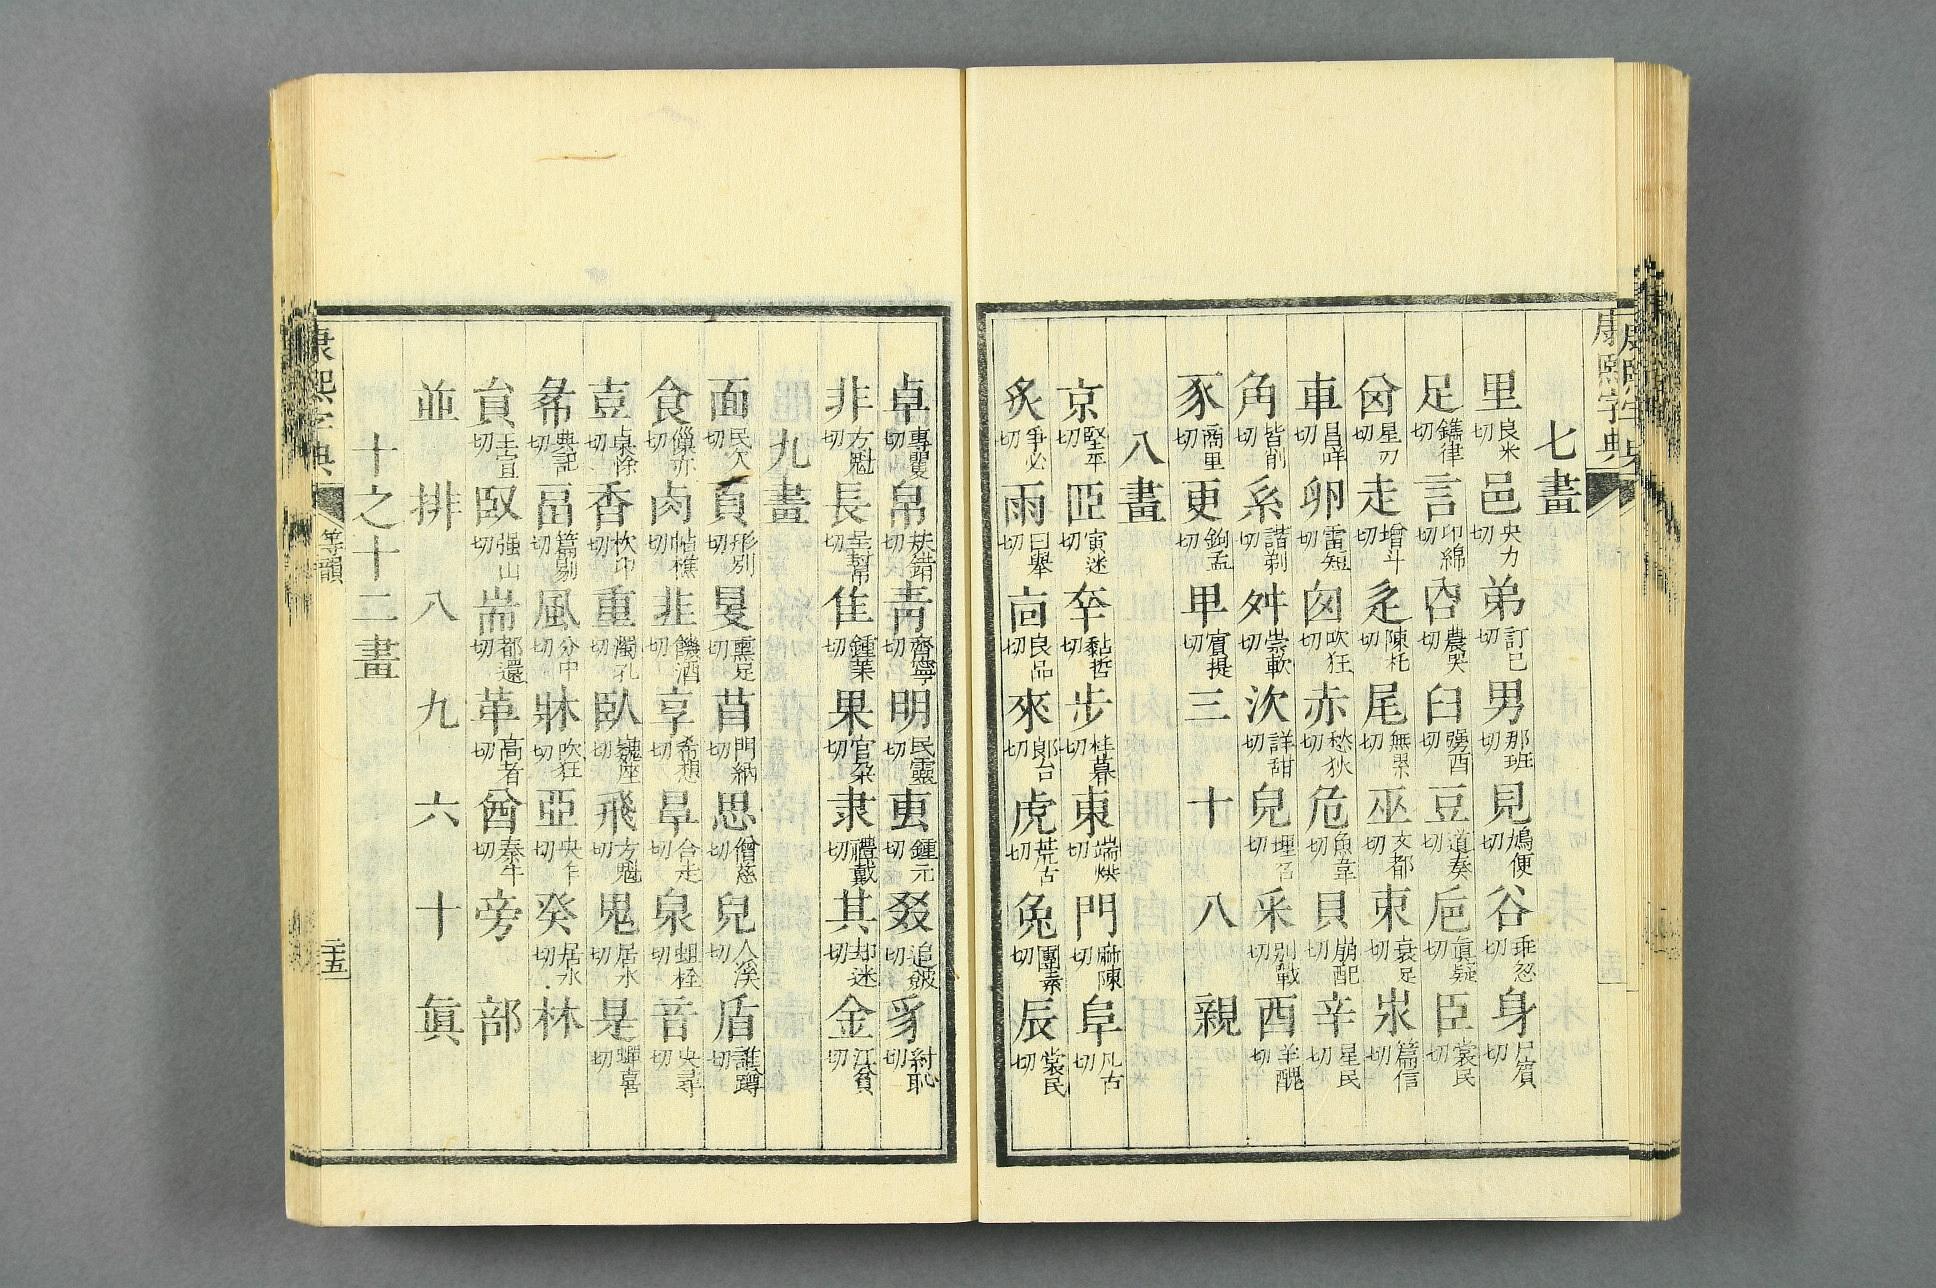 康熙字典
七畫
里良米切邑央力切弟訂已切男那班切見鳩便切谷乖忽切身尸賓切
足鐫律切言卬綿切㕯農哭切臼彊酉切豆道奏切巵眞疑切臣裳民切
㒸星刃切走增斗切辵陳柁切尾無累切巫文都切束衰足切𣏟篇信切
車昌咩切卵雷短切囪吹狂切赤愁狄切危魚韋切貝崩配切辛星民切
角皆削切系諧剃切舛崇軟切次詳甜切皃埋召切釆別戰切酉羊醜切
豖商里切更鉤孟切𤰞賓提切三十八親
八畫
京堅平切𦣞寅迷切㚔黏哲切步桂暮切東端烘切門廝陳切阜凡古切
炙爭必切雨曰舉切㐭良品切來郞台切虎荒古切兔團素切辰裳民切
卓專戄切帛扶錯切靑齊寧切明民靈切叀鍾元切叕追皴切豸紂恥切
非方魁切長呈幇切隹鍾茱切果官朶切隶禮戴切其却迷切金江貧切
九畫
面民欠切頁形別切㫐熏足切苜門納切思僧慈切兒人溪切盾誰蹲切
食儠亦切肉幀樵切韭饑酒切亯希想切㫗合走切泉蛆栓切音央尋切
壴桌除切香忺卬切重濁孔切臥巍座切飛方魁切鬼居水切是蟬喜切
㣇典記切畐篇剔切風分中切牀吹狂切亞央乍切癸居水切林
𠧪王宣切臤强山切耑都還切革高者切酋秦牛切旁部
並排八九六十眞
十之十二畫
康熙字典
等韻
二十五